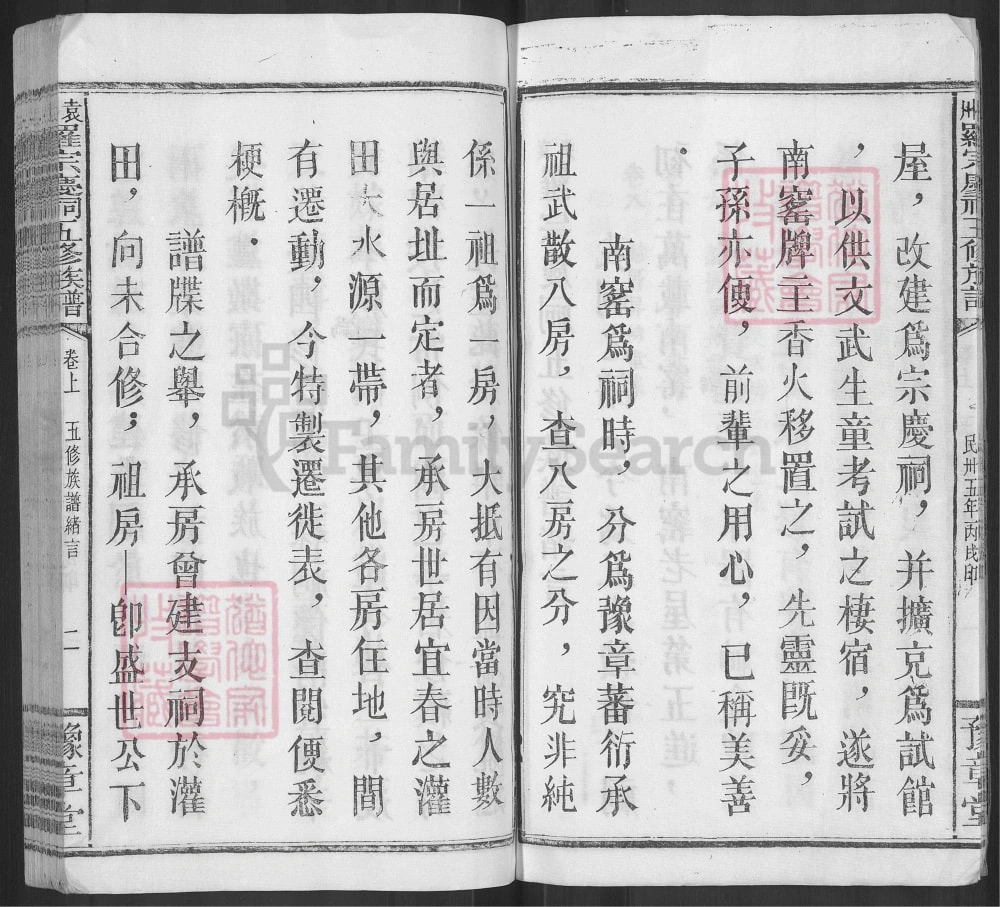 屋，改建爲宗慶祠，并擴充爲試館
，以供文武生童考試之棲宿，遂將
南窰牌主香火移置之，先靈既妥，
子孫亦便，前輩之用心，已稱美善
．
南窰爲祠時，分爲豫章蕃衍承
祖武散八房，查八房之分，究非純
民卅五年丙戌印
豫章堂
係一祖爲一房，大抵有因當時人數
與居址而定者，承房世居宜春之灌
田大水源一帶，其他各房住地，間
有遷動，今特製遷徙表，查閱便悉
梗概．
譜牒之舉，承房曾建支祠於灌
田，向未合修；祖房卽盛世公下
袁羅宗慶祠五修族譜
卷上
五修族譜緒言
二
豫章堂
FamilySearch